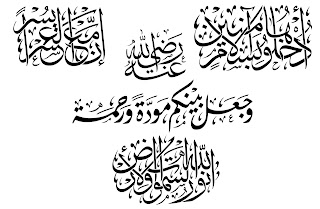 ادخلوها بسلام آمنين
رضي الله عنه
إن مع العسر يسرا
وجعل بينكم مودة ورحمة
الله نور السموات والأرض